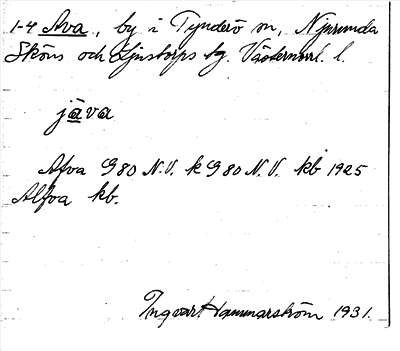 1-4 Ava, by i Tynderö sn, Njurunda
Sköns och Ljustorps tg. Västernorrl. l.
java
Afva G 80 N.V. k G 80 N.V. kb 1925
Alfva kb.
Ingvar Hammarström 1931.